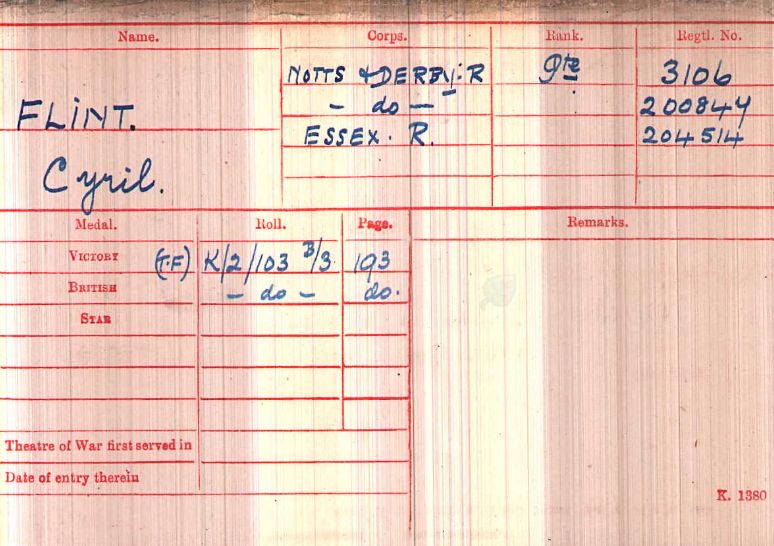 Name. Corps. Rank. Regtl. No.
FLINT. Cyril.
NOTTS & DERBY. R Pte 3106
- do - 200844
ESSEX. R. 204514
Medal. Roll. Page. Remarks.
VICTORY (T.F) K/2/103 B/3. 193
BRITISH - do - do.
STAR
Theatre of War first served in
Date of entry therein
K. 1380